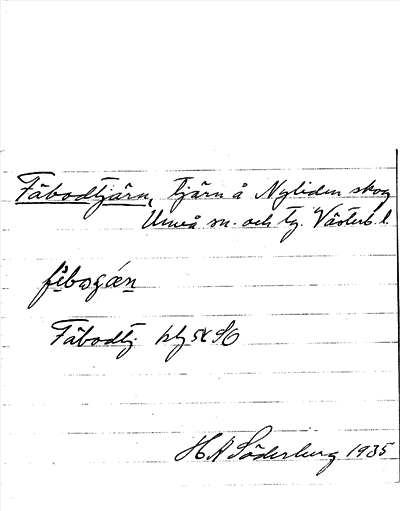 Fäbodtjärn, tjärn å Nyliden skog
Umeå sn. och tg. Västerb. l.
Fäbodtj. blg 54 SO
H A Söderberg 1935